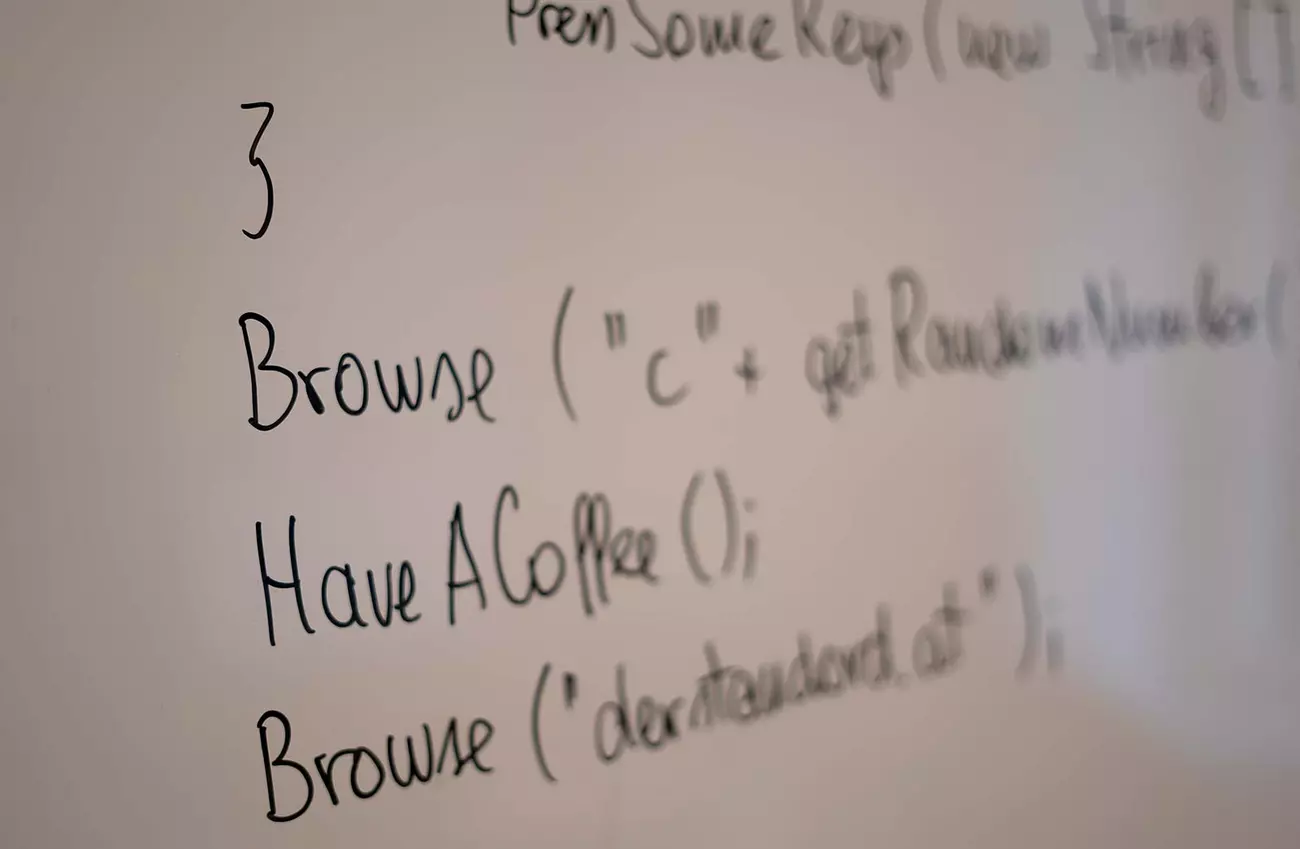 PressSomeKeys(new String[]
}
Browse ("c" + getRandomNumber(
HaveACoffee();
Browse ("derstandard.at");